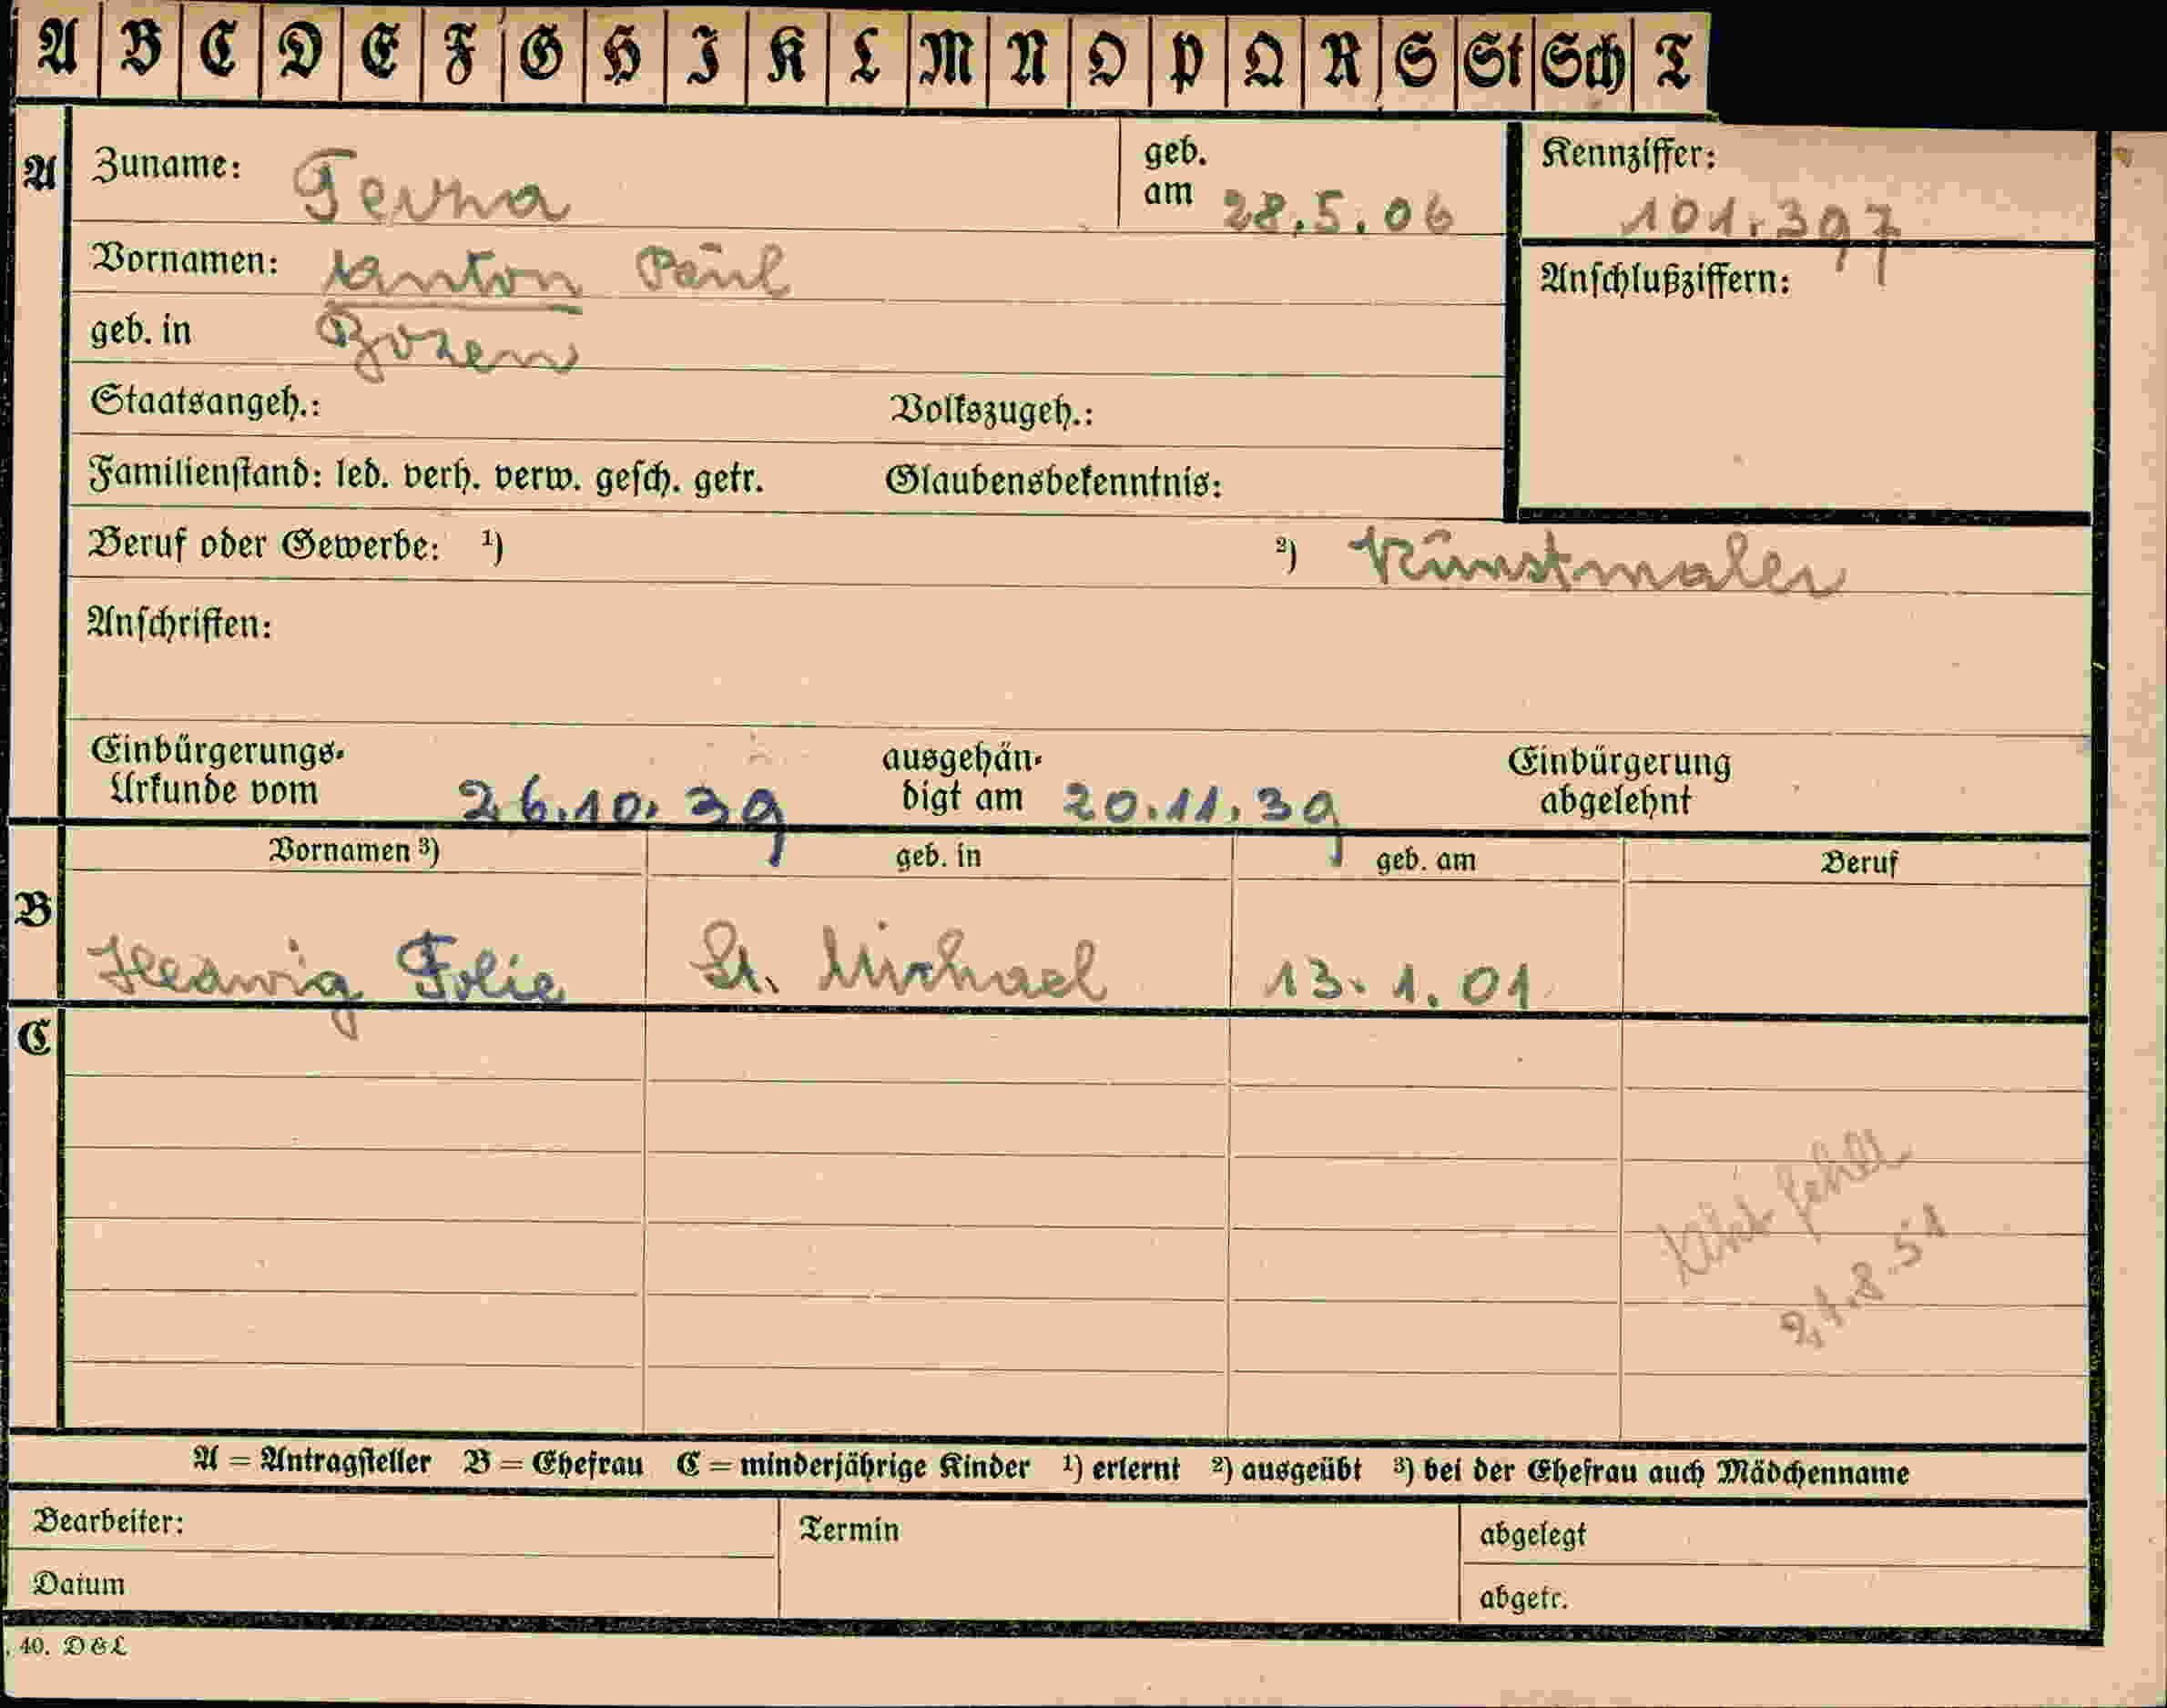 A B C D E F G H I K L M N O P Q R S St Sch T
A Zuname: Terna geb. am 28.5.06 Kennziffer: 101.397
Vornamen: Anton Paul Anschlußziffern:
geb. in Bozen
Staatsangeh.: Volkszugeh.:
Familienstand: led. verh. verw. gesch. getr. Glaubensbekenntnis:
Beruf oder Gewerbe: ¹) ²) Kunstmaler
Anschriften:
Einbürgerungs- ausgehän- Einbürgerung
Urkunde vom 26.10.39 digt am 20.11.39 abgelehnt
Vornamen ³) geb. in geb. am Beruf
B Hedwig Folie St. Michael 13.1.01
C
fehlt
21.8.51
A = Antragsteller B = Ehefrau C = minderjährige Kinder ¹) erlernt ²) ausgeübt ³) bei der Ehefrau auch Mädchenname
Bearbeiter: Termin abgelegt
Datum abgetr.
40. D&L